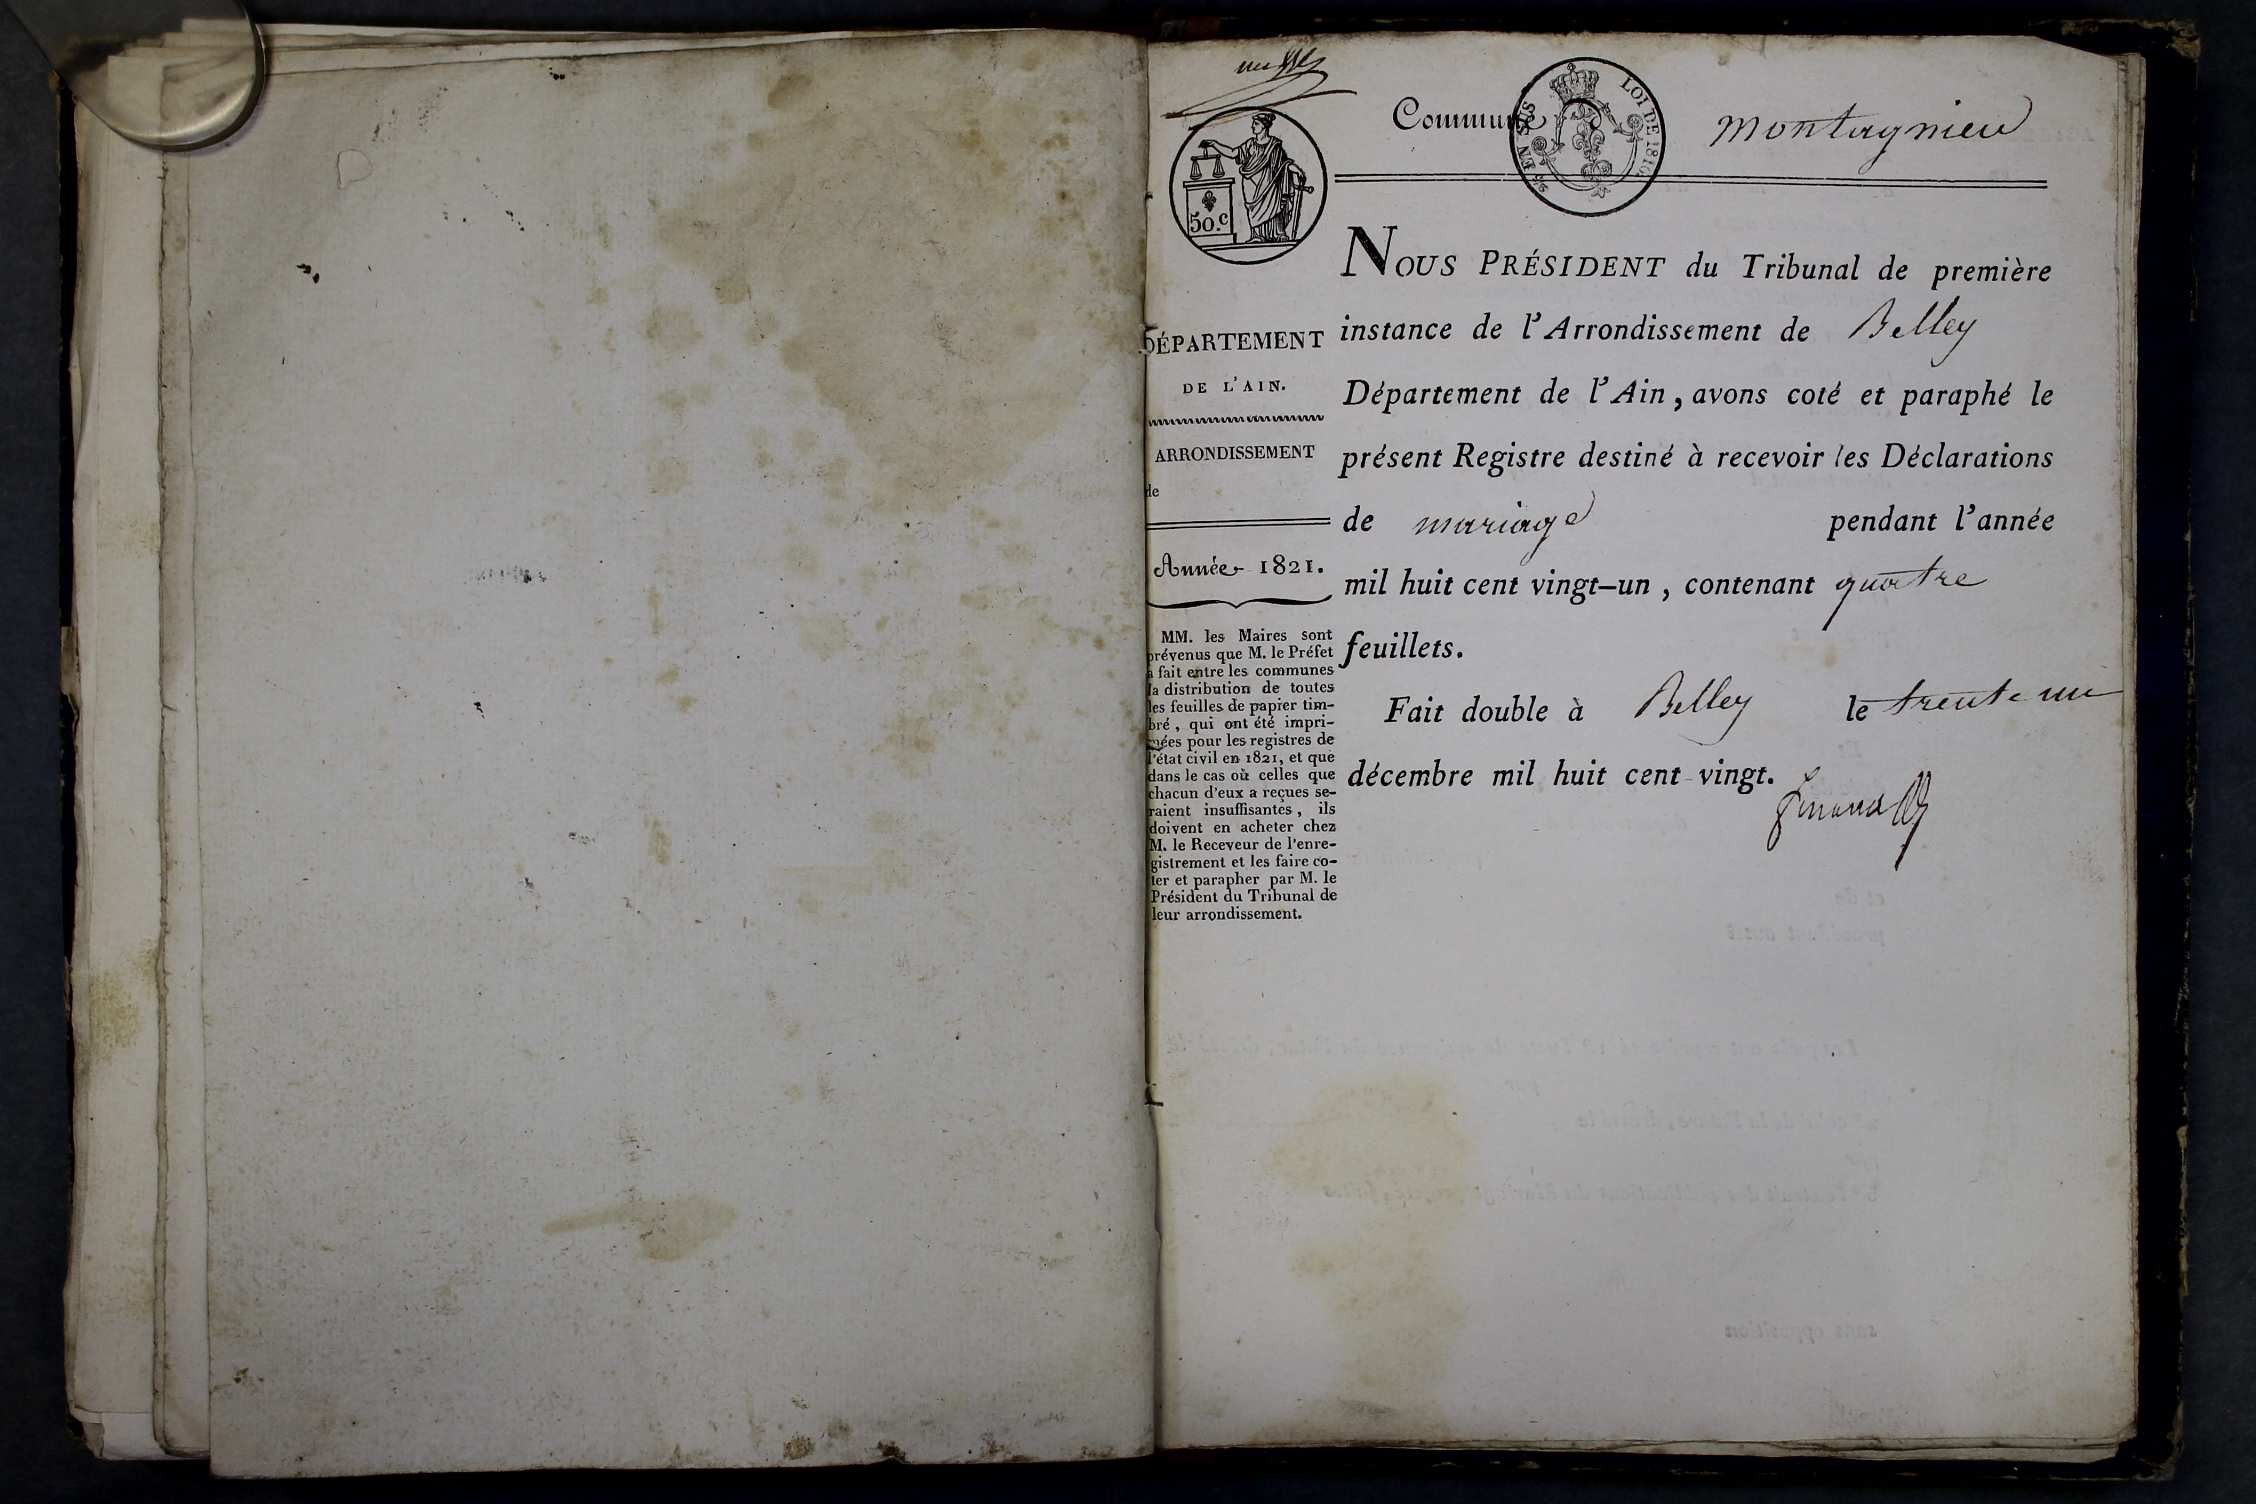 Commune
Montagnieu
EN SUS
LOI DE 1816.
50.c
NOUS PRÉSIDENT du Tribunal de première
instance de l'Arrondissement de Belley
Département de l'Ain, avons coté et paraphé le
présent Registre destiné à recevoir les Déclarations
de mariage pendant l'année
mil huit cent vingt-un, contenant quatre
feuillets.
Fait double à Belley le trente un
décembre mil huit cent vingt.
DÉPARTEMENT
DE L'AIN.
ARRONDISSEMENT
de
Année 1821.
MM. les Maires sont
prévenus que M. le Préfet
a fait entre les communes
la distribution de toutes
les feuilles de papier tim-
bré, qui ont été impri-
mées pour les registres de
l'état civil en 1821, et que
dans le cas où celles que
chacun d'eux a reçues se-
raient insuffisantes, ils
doivent en acheter chez
M. le Receveur de l'enre-
gistrement et les faire co-
ter et parapher par M. le
Président du Tribunal de
leur arrondissement.